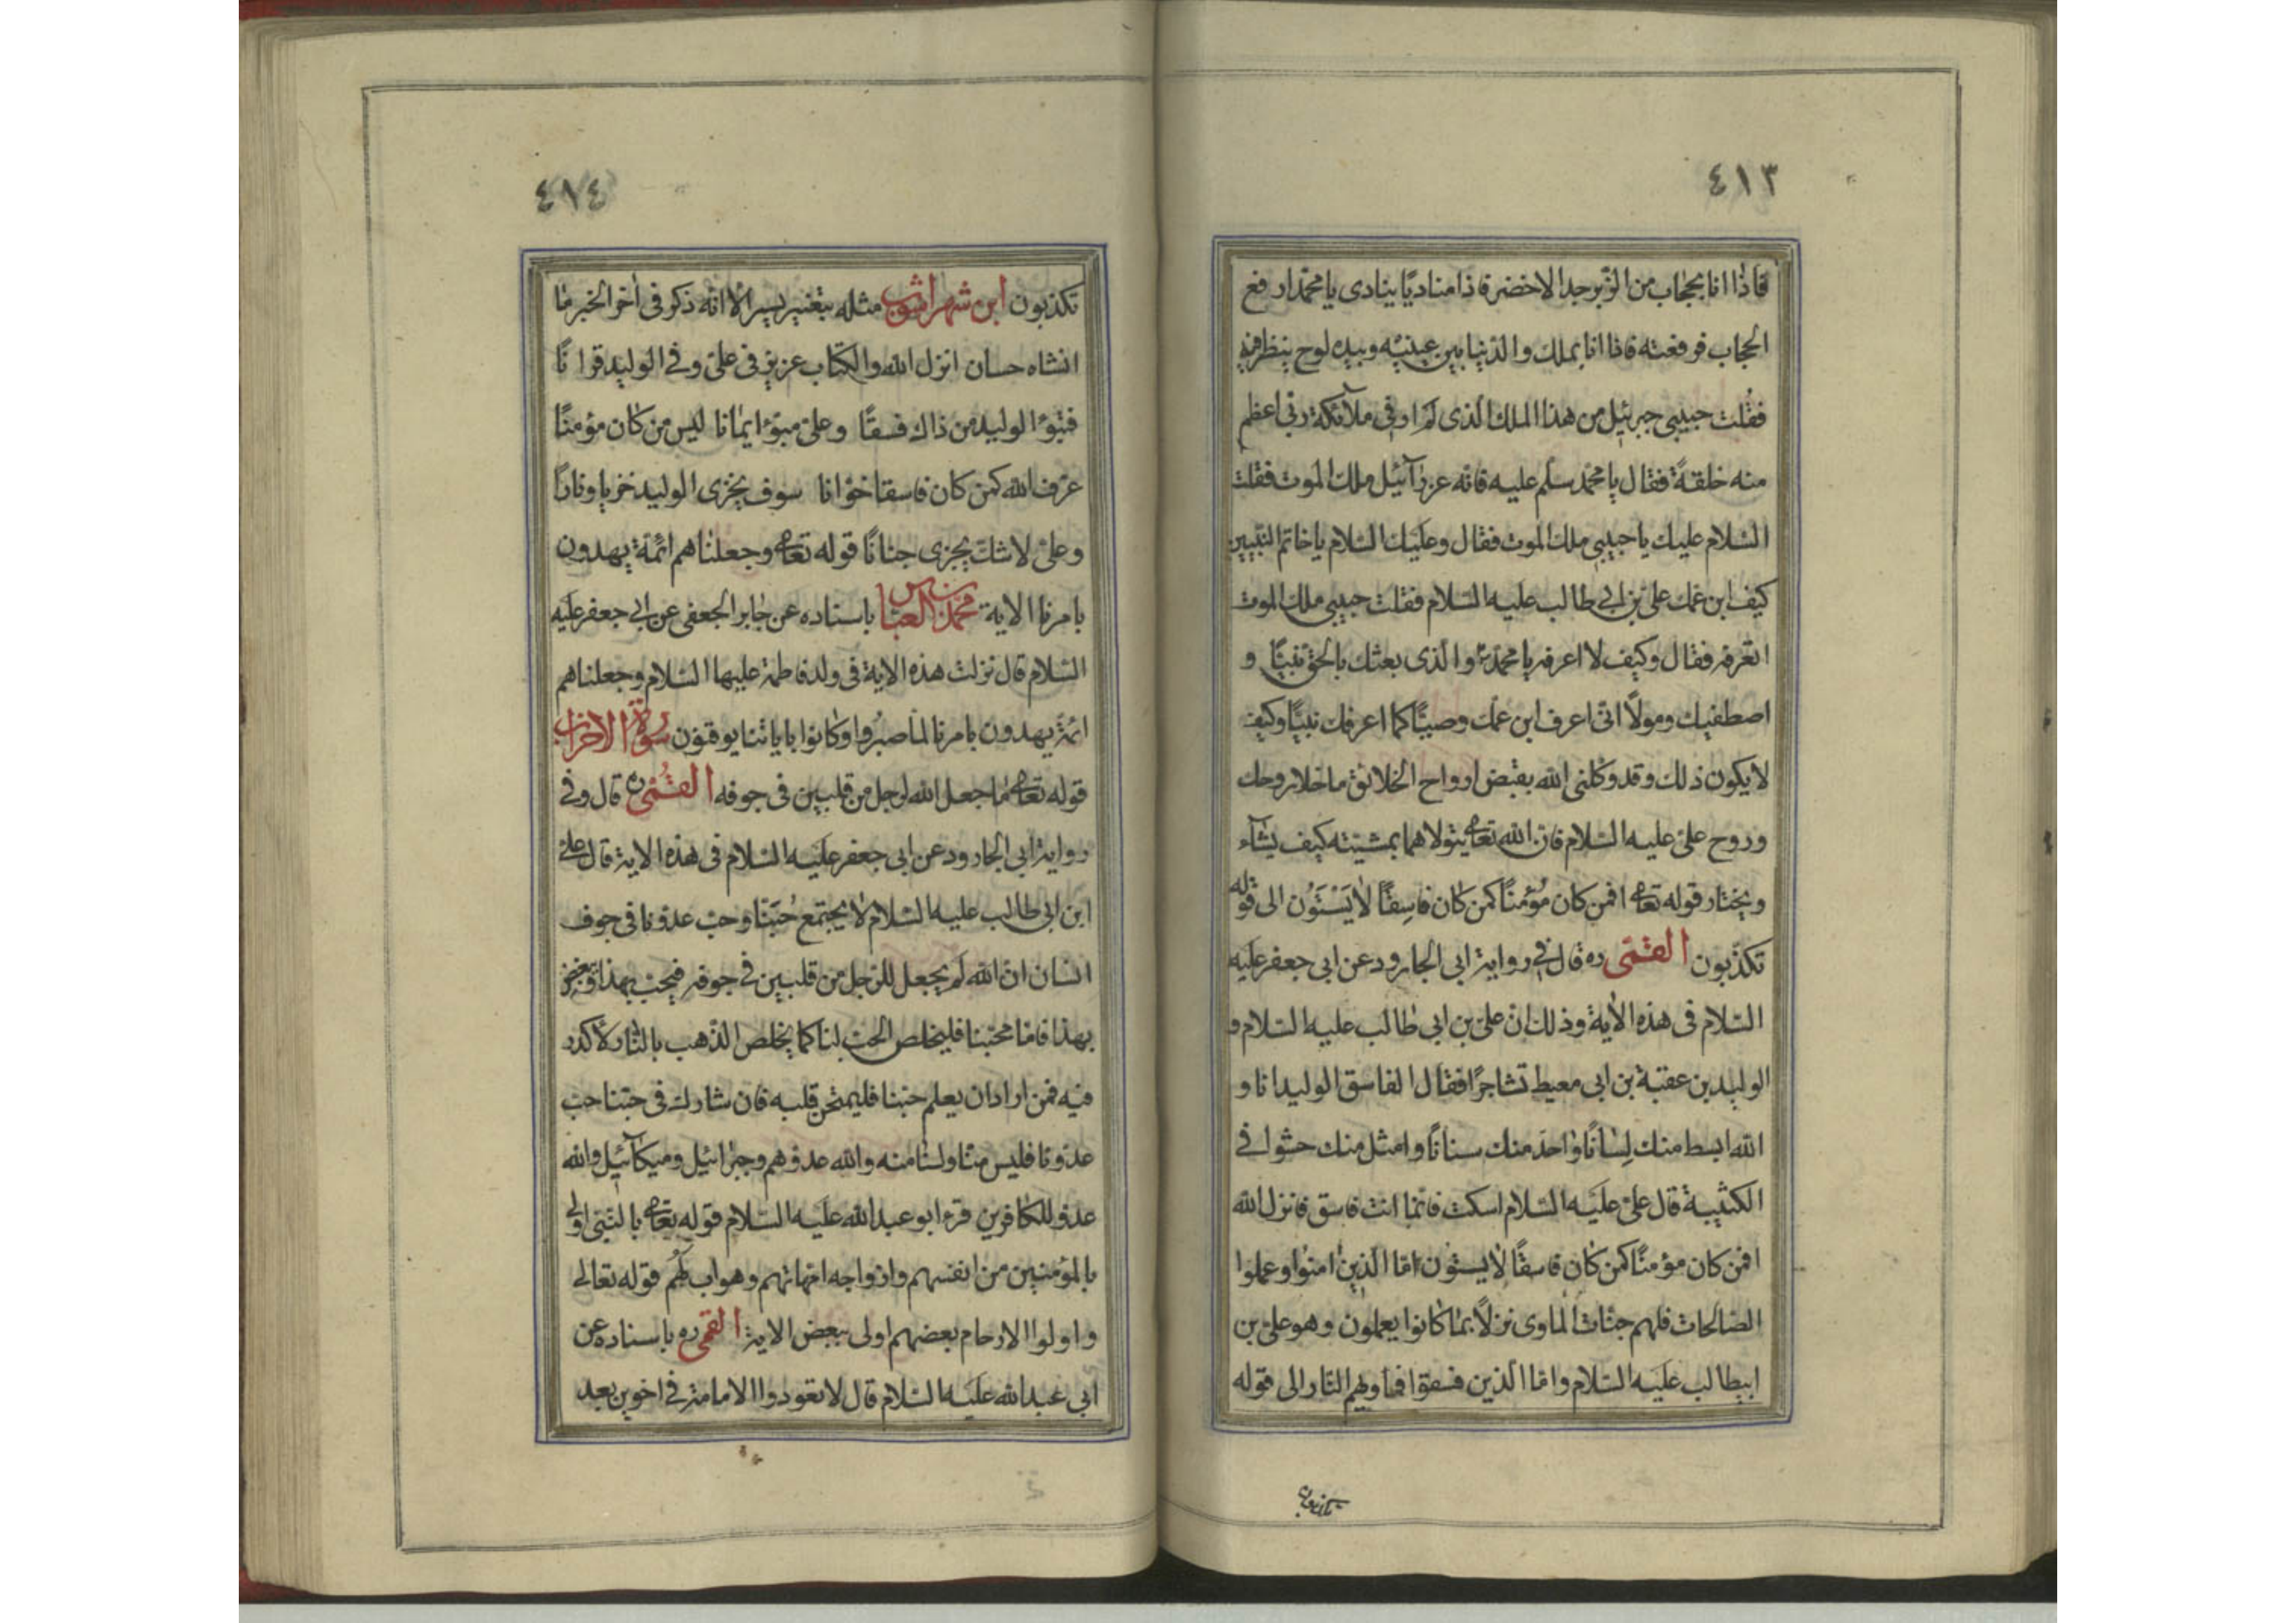 ٤١٣
فاذا انا بحجاب من الزبرجد الاخضر فاذا مناديًا ينادى يا محمّد ارفع
الحجاب فرفعته فاذا انا بملك والدّنيا بين عينيه وبيده لوح ينظر فيه
فقلت حبيبى جبرئيل من هذا الملك الذى لم ار فى ملآئكة ربّى اعظم
منه خلقةً فقال يا محمّد سلّم عليه فانّه عزرآئيل ملك الموت فقلت
السّلام عليك يا حبيبى ملك الموت فقال وعليك السّلام يا خاتم النّبيين
كيف ابن عمّك علىّ بن ابى طالب عليه السّلام فقلت حبيبى ملك الموت
اتعرفه فقال وكيف لا اعرفه يا محمّد والّذى بعثك بالحقّ نبيًّا و
اصطفيك ومولًا انّى اعرف ابن عمّك وصيًّا كما اعرفك نبيًّا وكيف
لا يكون ذلك وقد وكّلنى الله بقبض ارواح الخلائق ما خلا روحك
وروح علىّ عليه السّلام فانّ الله تعا يتولاهما بمشيته كيف يشآء
ويختار قوله تعا افمن كان مُؤمنًا كمن كان فاسِقًا لا يَسْتَوُن الى قوله
تكذّبون القمّى ره قال فى رواية ابى الجارود عن ابى جعفر عليه
السّلام فى هذه الاية وذلك انّ علىّ بن ابى طالب عليه السّلام و
الوليد بن عقبة بن ابى معيط تشاجرًا فقال الفاسق الوليد انا و
الله ابسط منك لِسانًا واحدّ منك سنانًا وامثل منك حشوا فى
الكتيبة قال علىّ عليه السّلام اسكت فانّما انت فاسق فانزل الله
افمن كان مؤمنًا كمن كان فاسقًا لا يستون امّا الّذين امنوا وعملوا
الصّالحات فلهم جنّات المأوى نزلًا بما كانوا يعملون وهو علىّ بن
ابيطالب عليه السّلام وامّا الّذين فسقوا فمأويهم النّار الى قوله
تكذبون
٤١٤
تكذبون ابن شهراشوب مثله بتغيير يسير الا انّه ذكر فى اخر الخبر ما
انشاه حسان انزل الله والكتاب عزيز فى علىّ وفى الوليد قرانًا
فتبوّا الوليد من ذاك فسقًا وعلىّ مبوّء ايمانا ليس من كان مؤمنًا
عرف الله كمن كان فاسقا خوّانا سوف يجزى الوليد خزيا ونارًا
وعلىّ لا شكّ يجزى جنانًا قوله تعا وجعلناهم ائمّة يهدون
بامرنا الاية محمّد بن العباس باسناده عن جابر الجعفى عن ابى جعفر عليه
السّلام قال نزلت هذه الاية فى ولد فاطمة عليها السّلام وجعلناهم
ائمّة يهدون بامرنا لمّا صبُروا وكانوا باياتنا يوقنون سورة الاحزاب
قوله تعا ما جعل الله لرجل من قلبين فى جوفه القُمّى ره قال وفى
رواية ابى الجارود عن ابى جعفر عليه السّلام فى هذه الاية قال علىّ
ابن ابى طالب عليه السّلام لا يجتمع حُبّنا وحبّ عدوّنا فى جوف
انسان انّ الله لم يجعل للرّجل من قلبين فى جوفه فيحبّ بهذا ويبغض
بهذا فامّا محبّنا فليخلص الحبّ لنا كما يخلص الذّهب بالنّار لا كدر
فيه فمن اراد ان يعلم حبّنا فليمتحن قلبه فان شارك فى حبّنا حبّ
عدوّنا فليس منّا ولسنا منه والله عدوّهم وجبرائيل وميكآئيل والله
عدوّ للكافرين قرء ابو عبد الله عليه السّلام قوله تعا بالنّبى اولى
بالمؤمنين من انفسهم وازواجه امّهاتهم وهو اب لهُم قوله تعالى
واولوا الارحام بعضهم اولى ببعض الاية القمّى ره باسناده عن
ابى عبد الله عليه السّلام قال لا تعود والامامة فى اخوين بعد